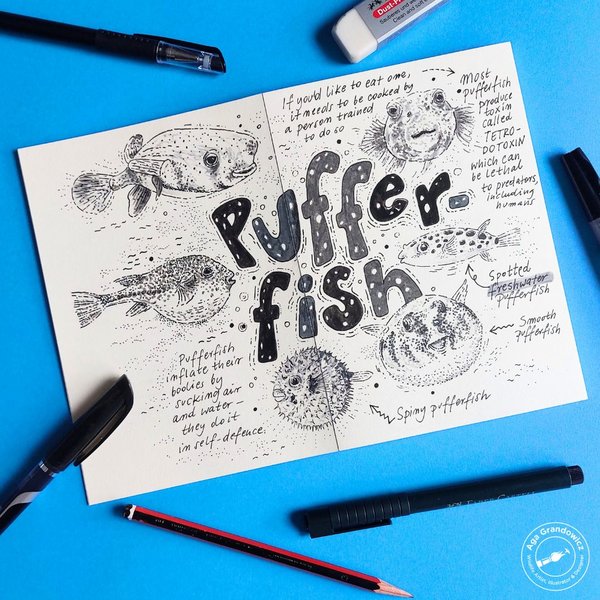 If you'd like to eat one,
it needs to be cooked by
a person trained
to do so
Most
pufferfish
produce
toxin
called
TETRO-
DOTOXIN
which can
be lethal
to predators,
including
humans
Puffer-
fish
Spotted
freshwater
pufferfish
Smooth
pufferfish
Spiny pufferfish
Pufferfish
inflate their
bodies by
sucking air
and water-
they do it
in self-defence.
Dust-Free
Aga Grandowicz